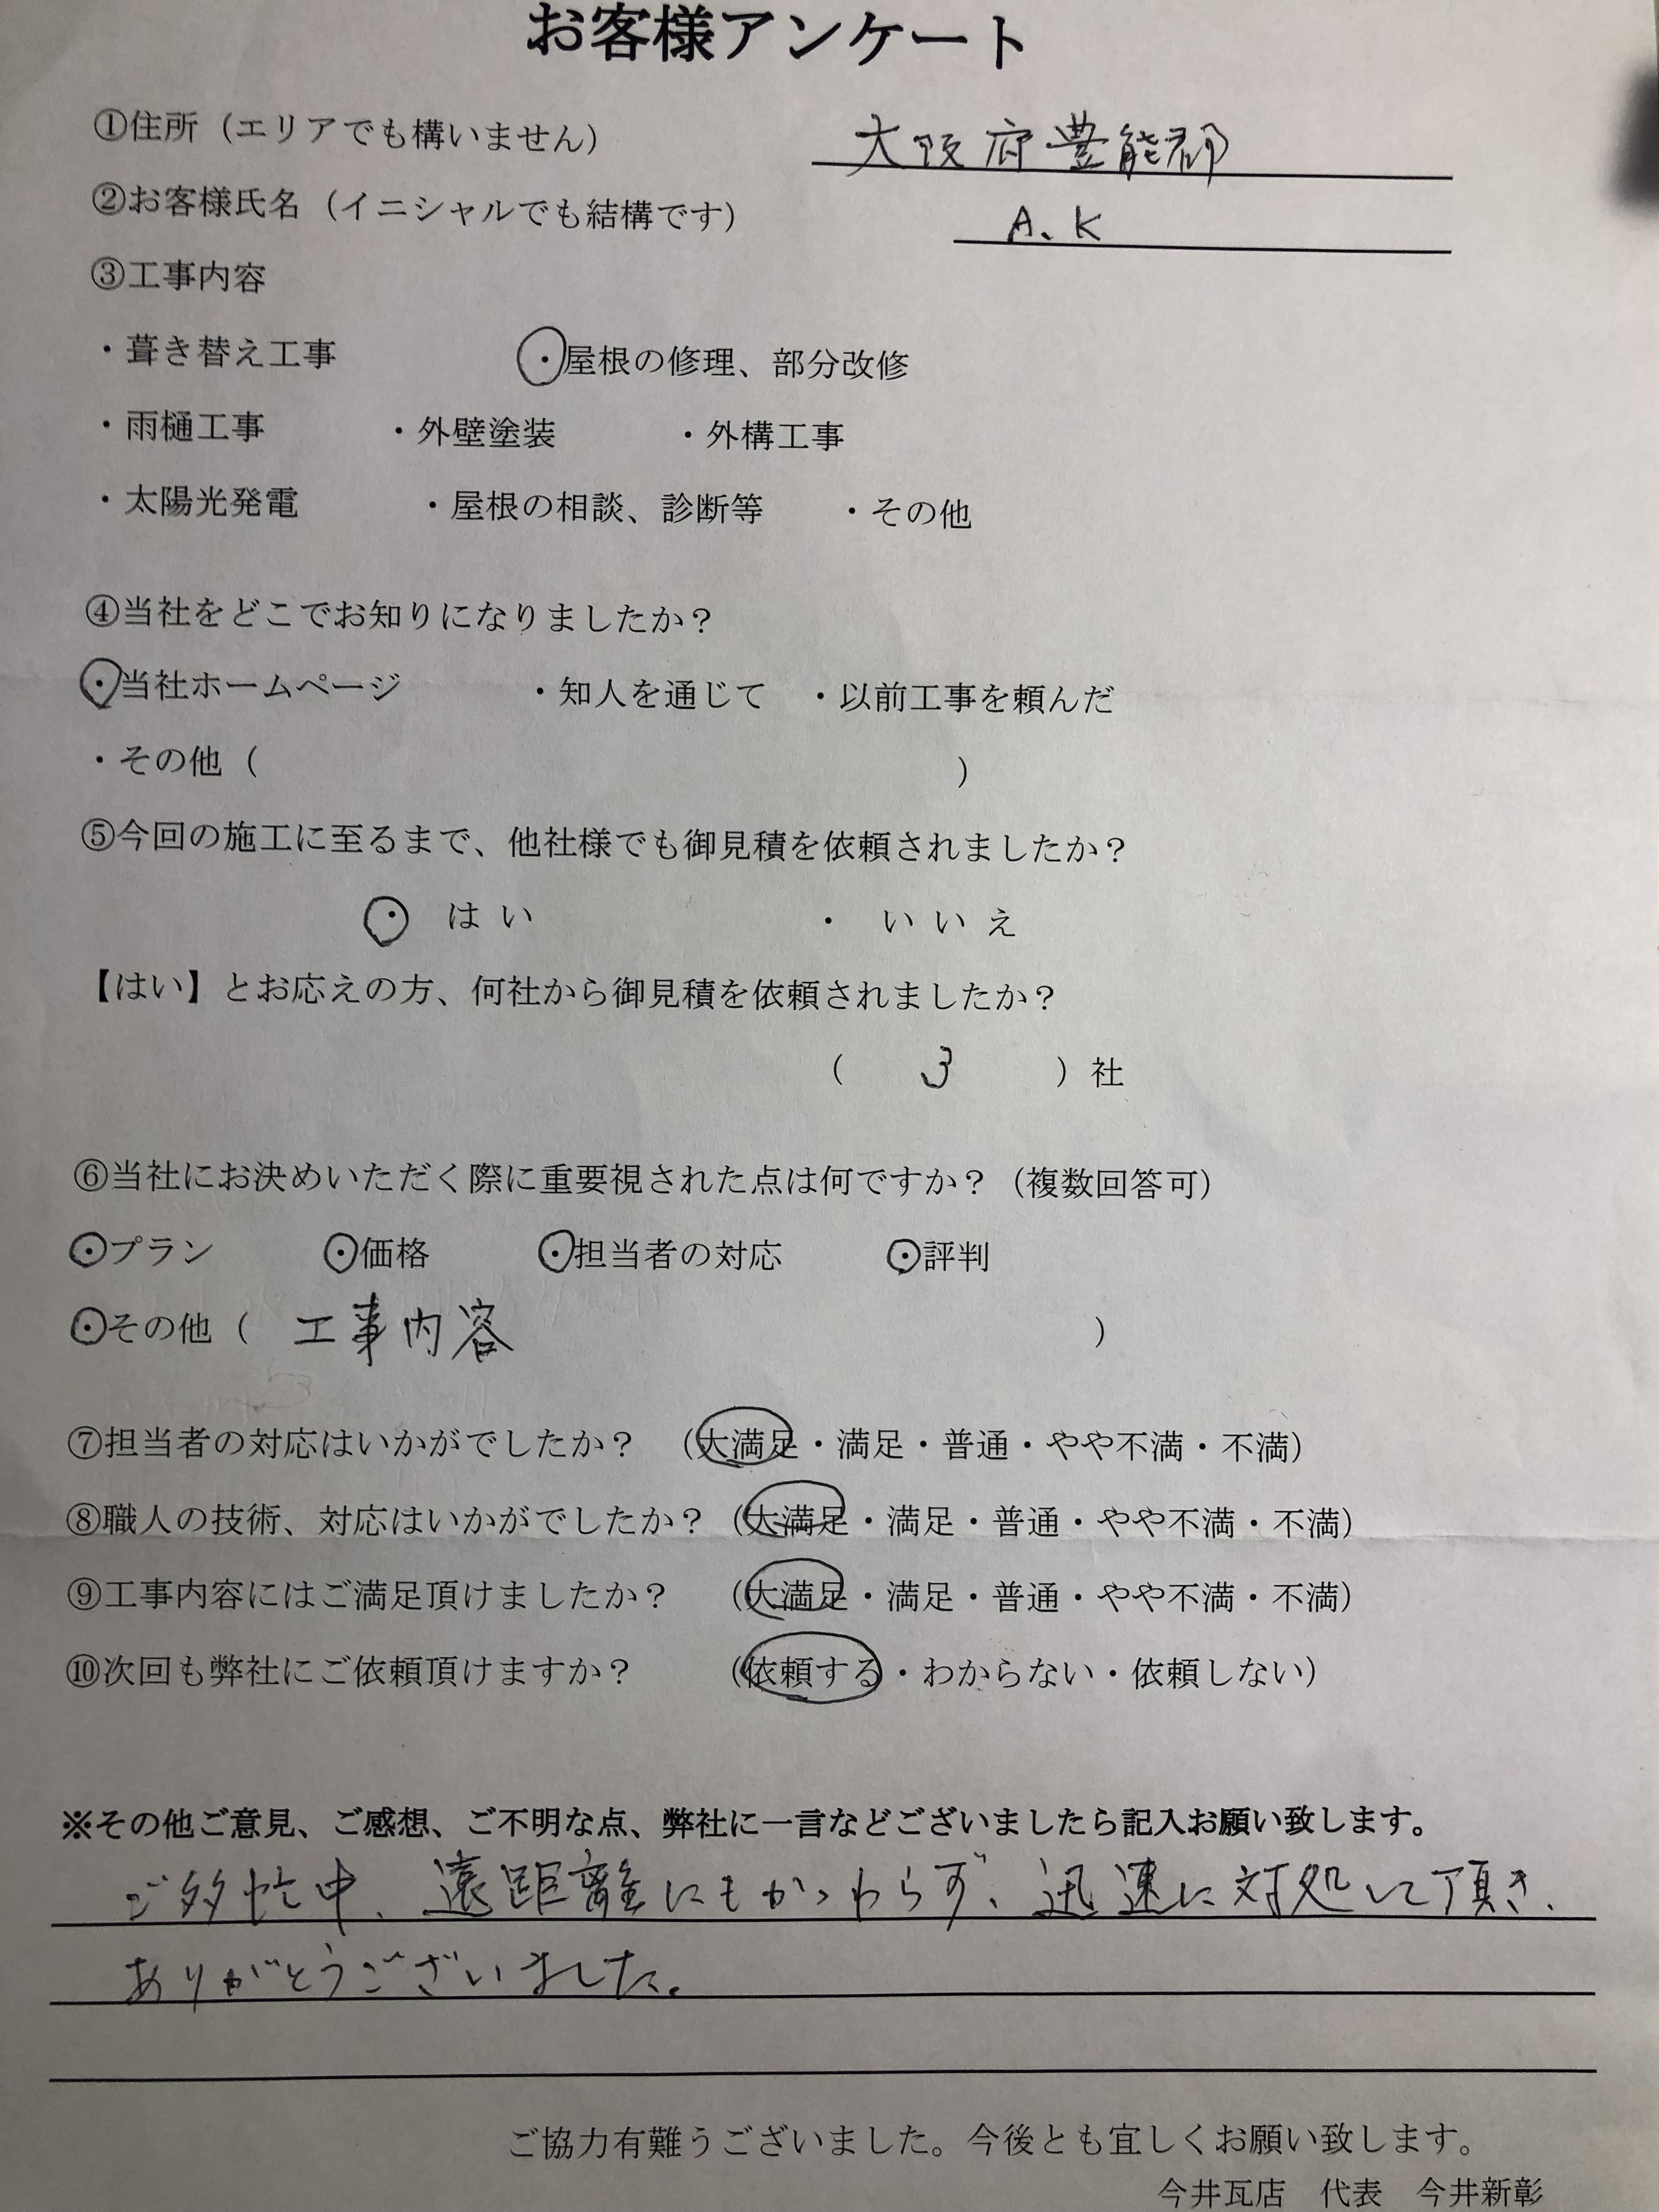 お客様アンケート
①住所（エリアでも構いません） 大阪府豊能郡
②お客様氏名（イニシャルでも結構です） A.K
③工事内容
・葺き替え工事 ・屋根の修理、部分改修
・雨樋工事 ・外壁塗装 ・外構工事
・太陽光発電 ・屋根の相談、診断等 ・その他
④当社をどこでお知りになりましたか？
・当社ホームページ ・知人を通じて ・以前工事を頼んだ
・その他（ ）
⑤今回の施工に至るまで、他社様でも御見積を依頼されましたか？
・ はい ・ いいえ
【はい】とお応えの方、何社から御見積を依頼されましたか？
（ 3 ）社
⑥当社にお決めいただく際に重要視された点は何ですか？（複数回答可）
・プラン ・価格 ・担当者の対応 ・評判
・その他（ 工事内容 ）
⑦担当者の対応はいかがでしたか？ （大満足・満足・普通・やや不満・不満）
⑧職人の技術、対応はいかがでしたか？（大満足・満足・普通・やや不満・不満）
⑨工事内容にはご満足頂けましたか？ （大満足・満足・普通・やや不満・不満）
⑩次回も弊社にご依頼頂けますか？ （依頼する・わからない・依頼しない）
※その他ご意見、ご感想、ご不明な点、弊社に一言などございましたら記入お願い致します。
ご多忙中、遠距離にもかゝわらず、迅速に対処して頂き、
ありがとうございました。
ご協力有難うございました。今後とも宜しくお願い致します。
今井瓦店 代表 今井新彰